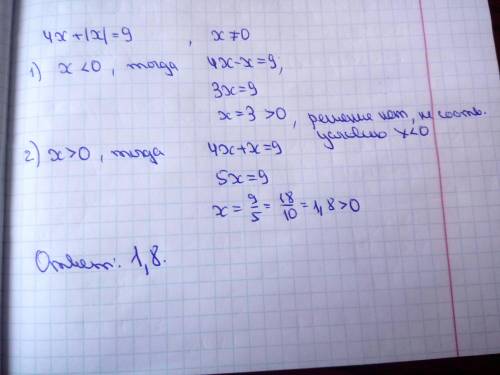 4x+|x|=9 , x≠0
1) x<0, тогда 4x-x=9,
3x=9
x=3>0, решения нет, не соотв.
условию x<0
2) x>0, тогда 4x+x=9
5x=9
x=9/5=18/10=1,8>0
Ответ: 1,8.